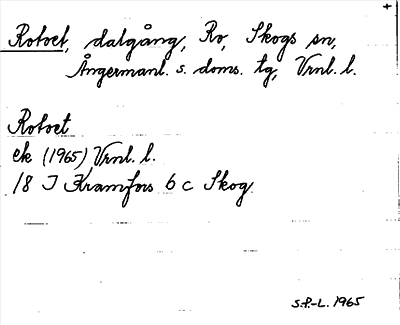 Rotvet, dalgång, Ro, Skogs sn,
Ångermanl. s. doms. tg, Vrnl. l.
Rotvet
ek (1965) Vrnl. l.
18 J Kramfors 6 c Skog
S.P.-L. 1965